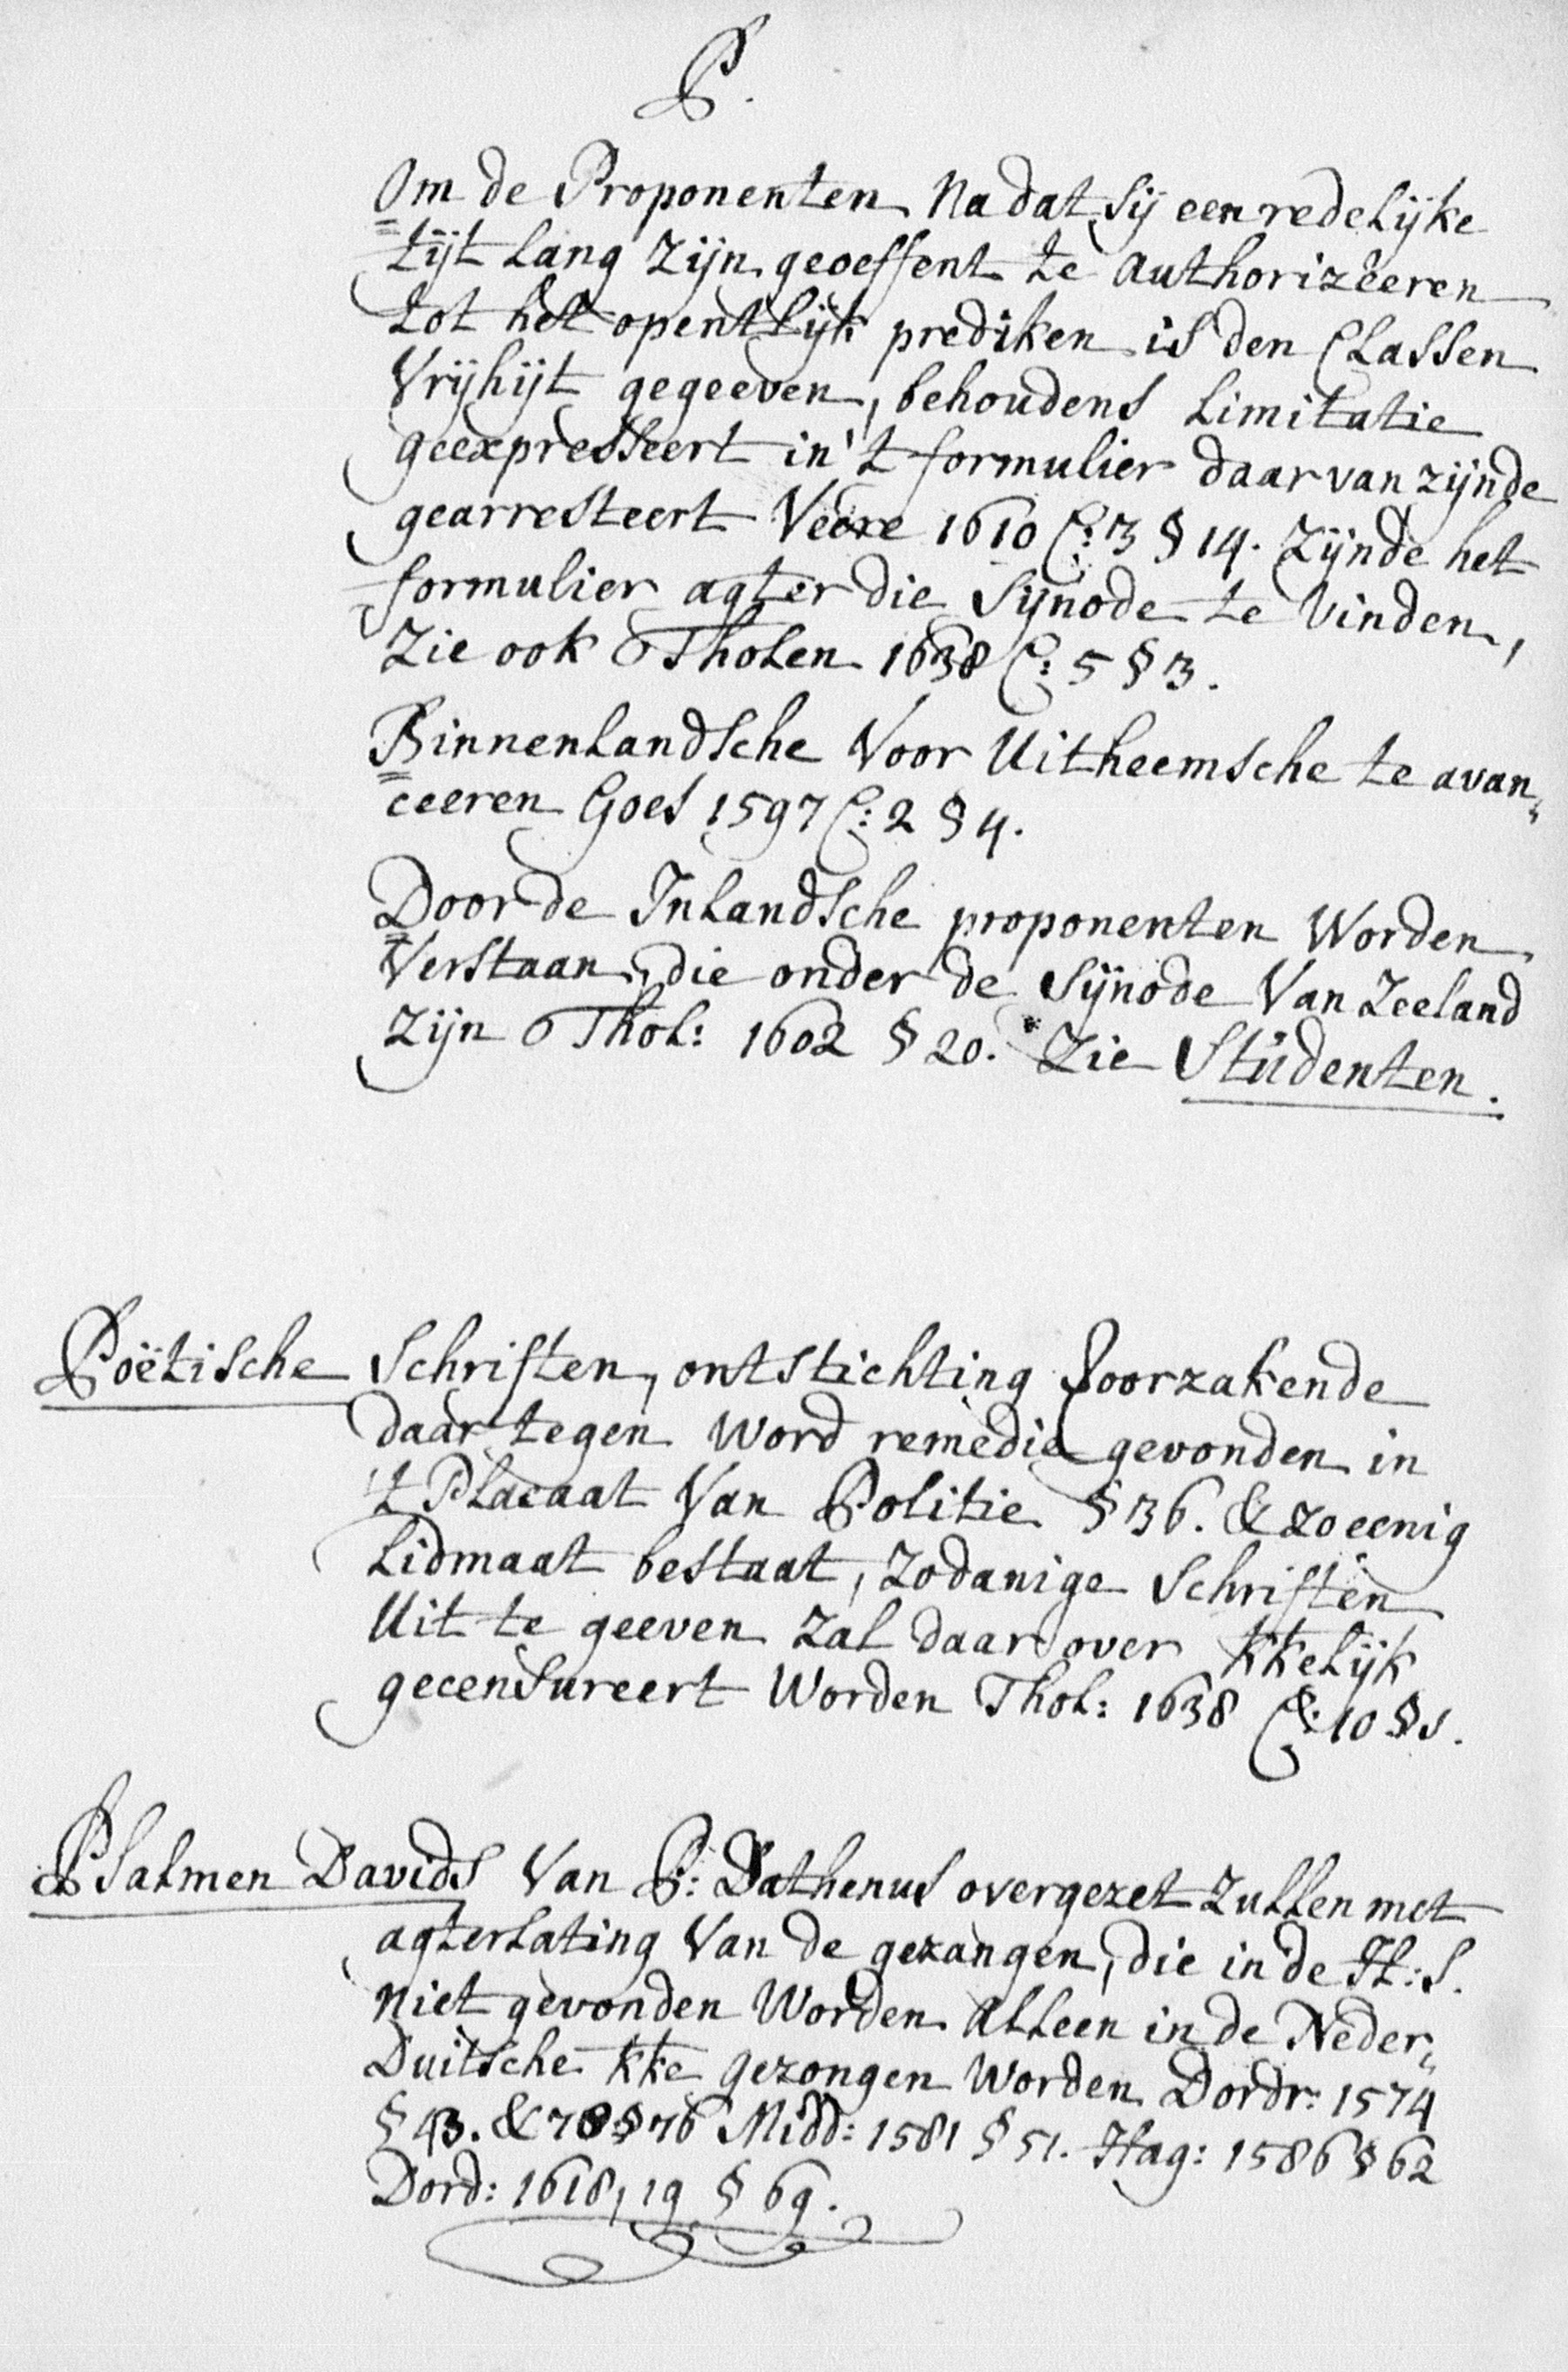 P.
Om de Proponenten Na dat sij een redelijke
tijt lang zijn geoeffent te authorizeeren
tot het opentlijk prediken is den Classen
Vrijhijt gegeeven, behoudens Limitatie
geexpresseert in't formulier daar van zijnde
gearresteert Veere 1610 C: 3 § 14. Zijnde het
formulier agter die Sijnode te Vinden,
Zie ook Tholen 1638 C: 5 § 3.
Binnenlandsche Voor Uitheemsche te avan„
ceeren Goes 1597 C: 2 § 4.
Door de Inlandsche proponenten Worden
Verstaan, die onder de Sijnode Van Zeeland
Zijn Thol: 1602 § 20. Zie Studenten.
Poëtische Schriften, ontstichting voorzakende
daar tegen word remedie gevonden in
't Placaat Van Politie § 36. & zo eenig
Lidmaat bestaat, zodanige Schriften
Uit te geeven zal daar over kkelijk
gecensureert Worden Thol: 1638 C: 10 § 1.
Psalmen Davids Van P: Dathenus overgezet Zullen met
agterlating Van de gezangen, die in de H: S.
niet gevonden Worden alleen in de Neder„
Duitsche kke gezongen Worden Dordr: 1574
§ 43. & 78 § 76 Midd: 1581 § 51. Hag: 1586 § 62
Dord: 1618, 19 § 69.